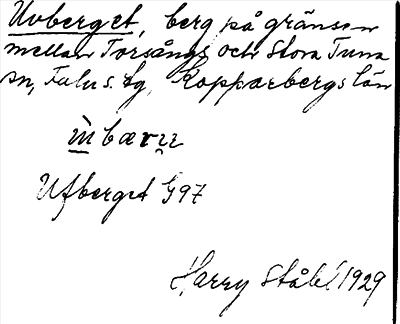 Uvberget, berg på gränsen
mellan Torsångs och Stora Tuna
sn, Falu s. tg, Kopparbergs län
Ufberget G97
Harry Ståhl 1929